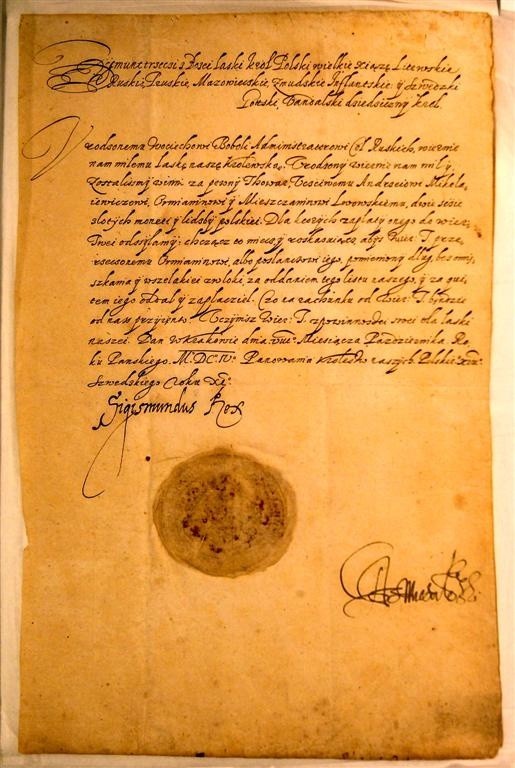 Zygmunt trzeci z Bożei Łaski Krol Polski wielkie Xiążę Litewskie
Ruskie, Pruskie, Mazowieckie, Żmudskie Inflantskie y Szwedzki
Gotski, Vandalski dziedziczny krol
Vrodzonemu Woyciechowi Boboli Administratorowi Cel Ruskich, wiernie
nam miłemu łaskę naszę Krolewską. Vrodzony wiernie nam miły
Zostalismy winni za pewny Thowar, Vczciwemu Andrzeiowi Mikola
iewiczowi, Ormianinowi y Mieszczaninowi Lwowskiemu, dwie scie
złotych monety y liczby polskiei. Dla ktorych zapłaty onego do wier:
Twei odsyłamy: chcząc to miecz y roskazuiącz abys Wier: T prze
rzeczonemu Ormianinowi, albo posłancowi iego, pomieniony dług bez omi,
szkania y wszelakiei zwłoki za oddaniem tego listu naszego, y za qui,
tem iego oddał y zapłaczieł. Czo na rachunku od Wier: T będzie
od nas przyięto. Vczynisz Wier: T. z powinnosci swei dla łaski
naszei. Dan w Krakowie dnia Miesiącza Pazdziernika Ro,
ku Panskiego. M.DC.IV. Panowania krolestw naszych Polskie
Szwedskiego roku
Sigismundus Rex